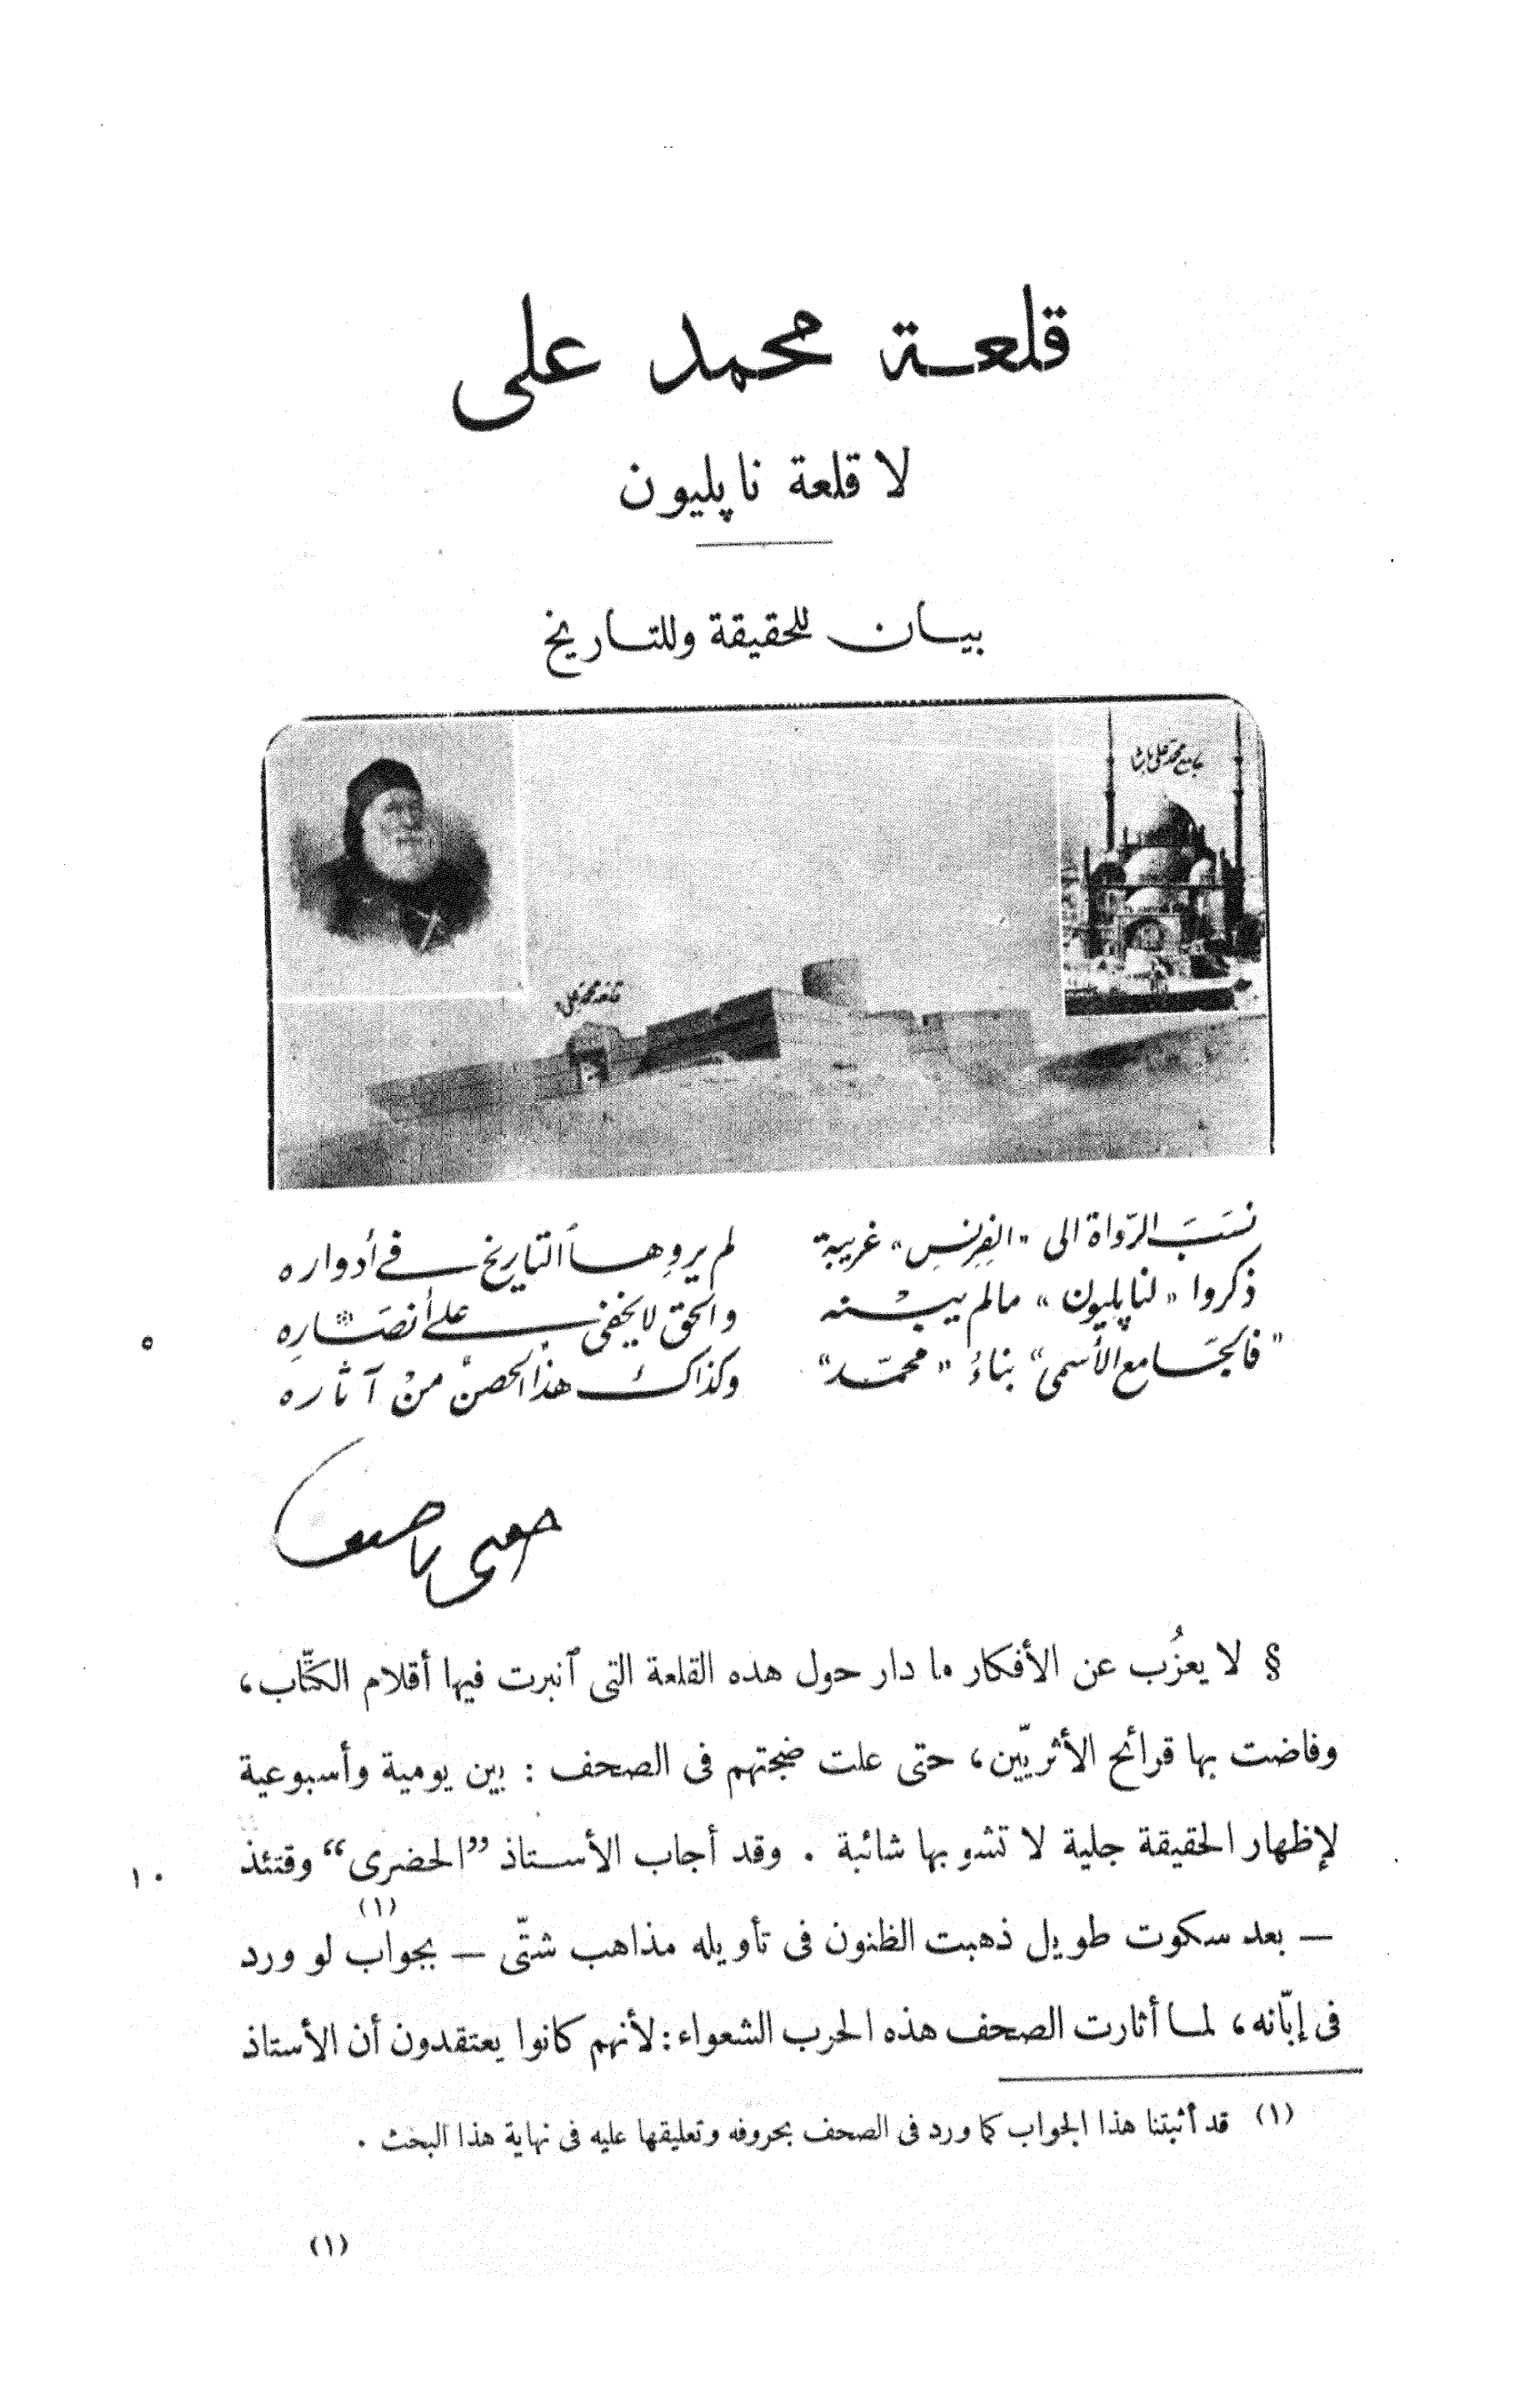 قلعة محمد على
لا قلعة ناپليون
بيان للحقيقة وللتاريخ
جامع محمد على باشا
قلعة محمد على
نسَبَ الرّواة الى "الفِرنسِ" غريبة لم يروِها التاريخ في أدواره
ذكروا "لناپليون" مالم يبْنه والحق لا يخفى على أنصَاره
٥
"فالجَامع الأسمى" بناءُ "محمّد" وكذاك هذا الحصنُ منْ آثاره
حفنى ناصف
§ لا يعزُب عن الأفكار ما دار حول هذه القلعة التى ٱنبرت فيها أقلام الكتَّاب،
وفاضت بها قرائح الأثريّين، حتى علت ضجتهم فى الصحف : بين يومية وأسبوعية
لإظهار الحقيقة جلية لا تشوبها شائبة . وقد أجاب الأستاذ "الحضرى" وقتئذ
١٠
— بعد سكوت طويل ذهبت الظنون فى تأويله مذاهب شتّى — بجواب (١) لو ورد
فى إبّانه، لما أثارت الصحف هذه الحرب الشعواء: لأنهم كانوا يعتقدون أن الأستاذ
(١) قد أثبتنا هذا الجواب كما ورد فى الصحف بحروفه وتعليقها عليه فى نهاية هذا البحث .
(١)